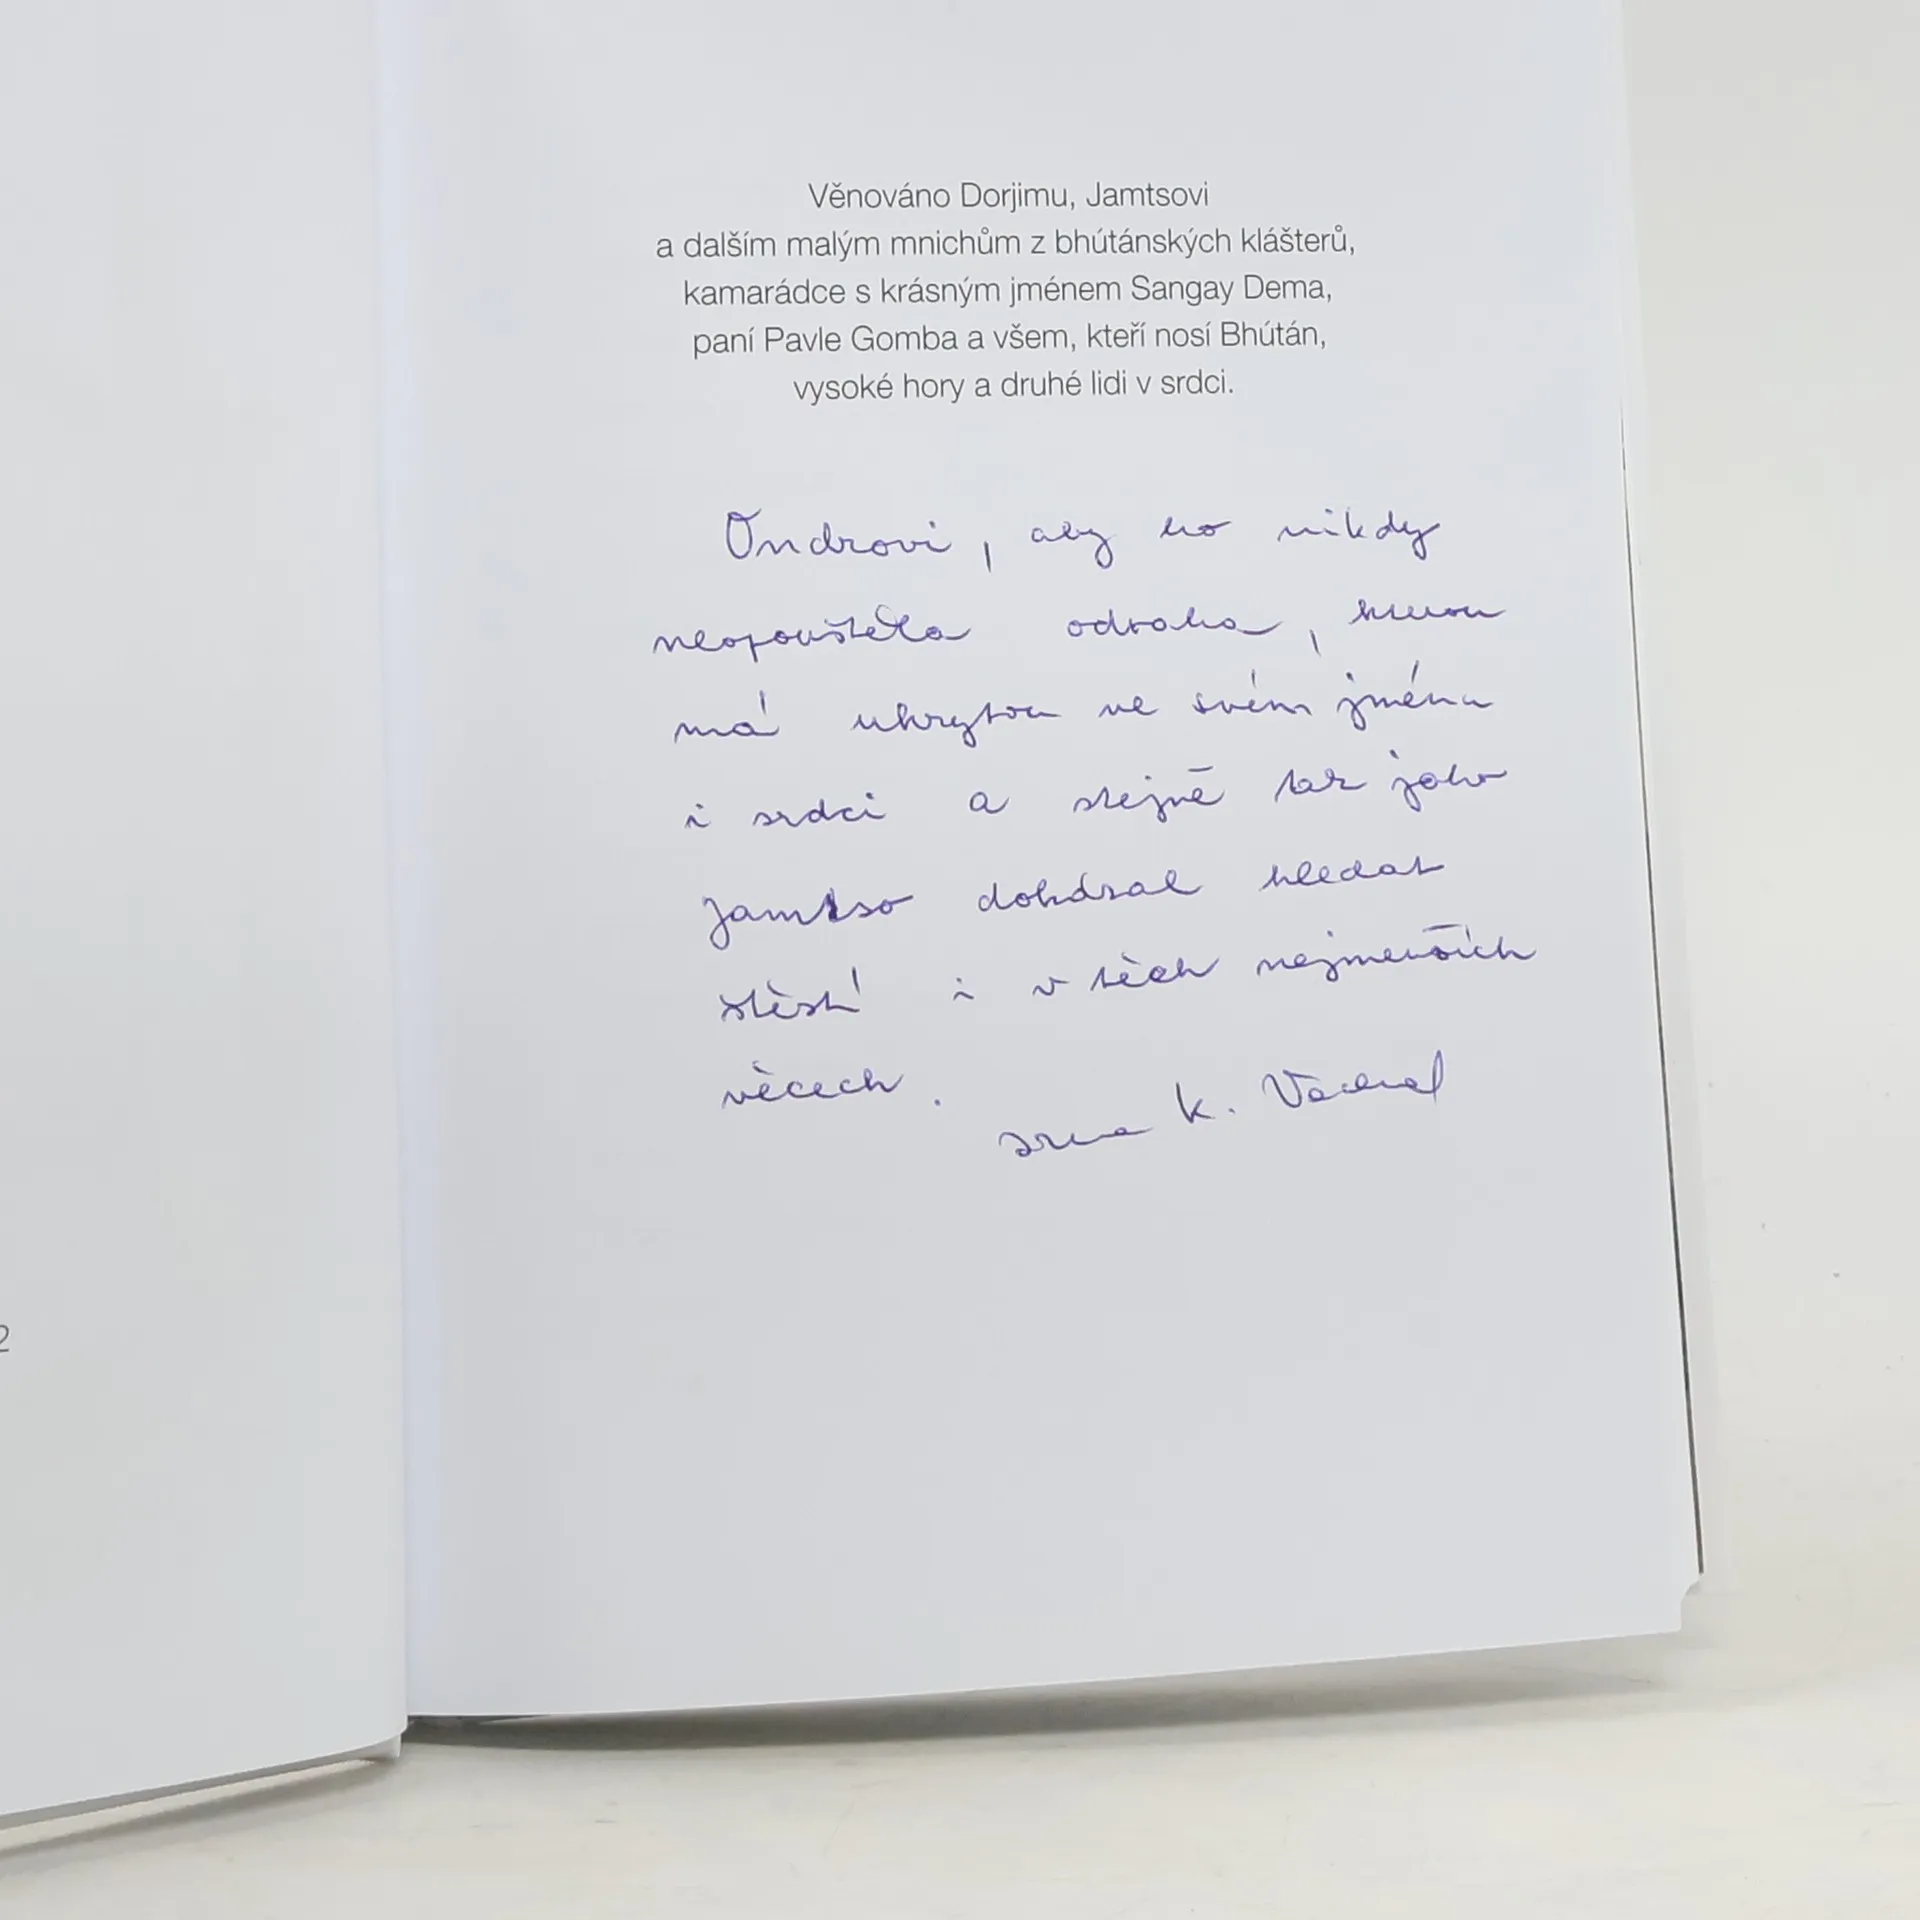 Věnováno Dorjimu, Jamtsovi
a dalším malým mnichům z bhútánských klášterů,
kamarádce s krásným jménem Sangay Dema,
paní Pavle Gomba a všem, kteří nosí Bhútán,
vysoké hory a druhé lidi v srdci.
Ondrovi, aby ho nikdy
neopouštěla odvaha, kterou
má ukrytou ve svém jménu
i srdci a stejně tak jako
Jamtso dokázal hledat
štěstí i v těch nejmenších
věcech.
K.
2